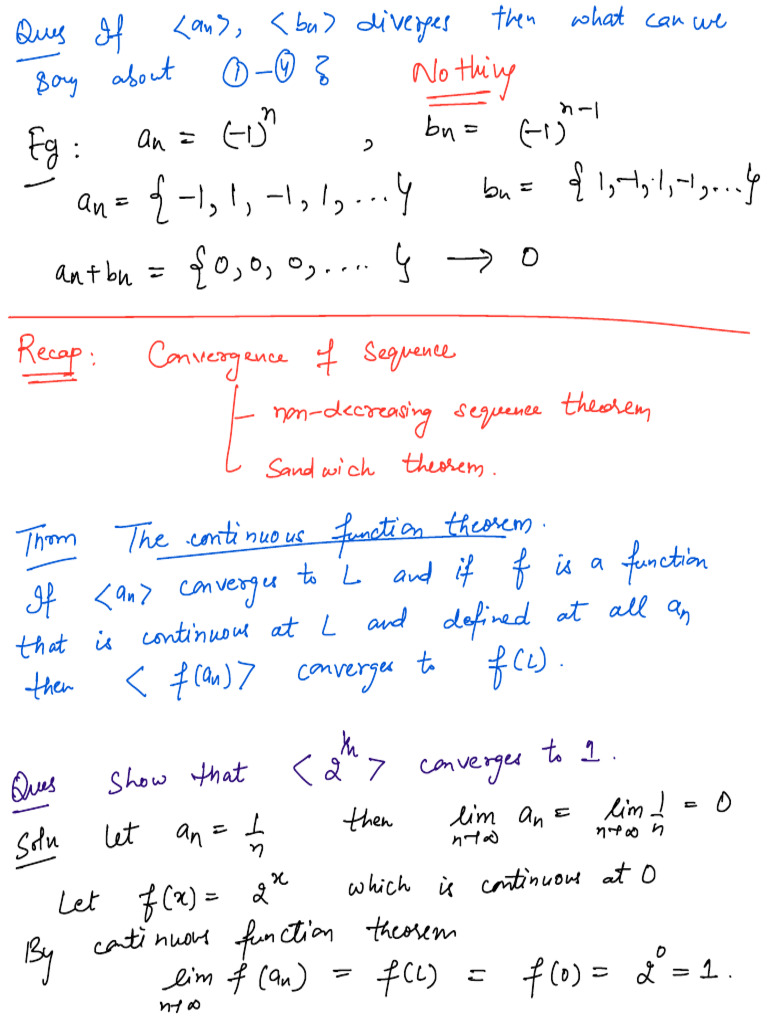 Ques If <an>, <bn> diverges then what can we
say about ①-④ ? Nothing
Eg : an = (-1)^n , bn = (-1)^{n-1}
an = {-1, 1, -1, 1, ...} bn = {1, -1, 1, -1, ...}
an+bn = {0, 0, 0, ....} → 0
Recap: Convergence of sequence
non-decreasing sequence theorem
Sandwich theorem.
Thom The continuous function theorem.
If <an> converges to L and if f is a function
that is continuous at L and defined at all an
then < f(an)> converges to f(L).
Ques Show that <2^{1/n}> converges to 1.
Soln Let an = 1/n then lim n→∞ an = lim n→∞ 1/n = 0
Let f(x) = 2^x which is continuous at 0
By continuous function theorem
lim n→∞ f(an) = f(L) = f(0) = 2^0 = 1.